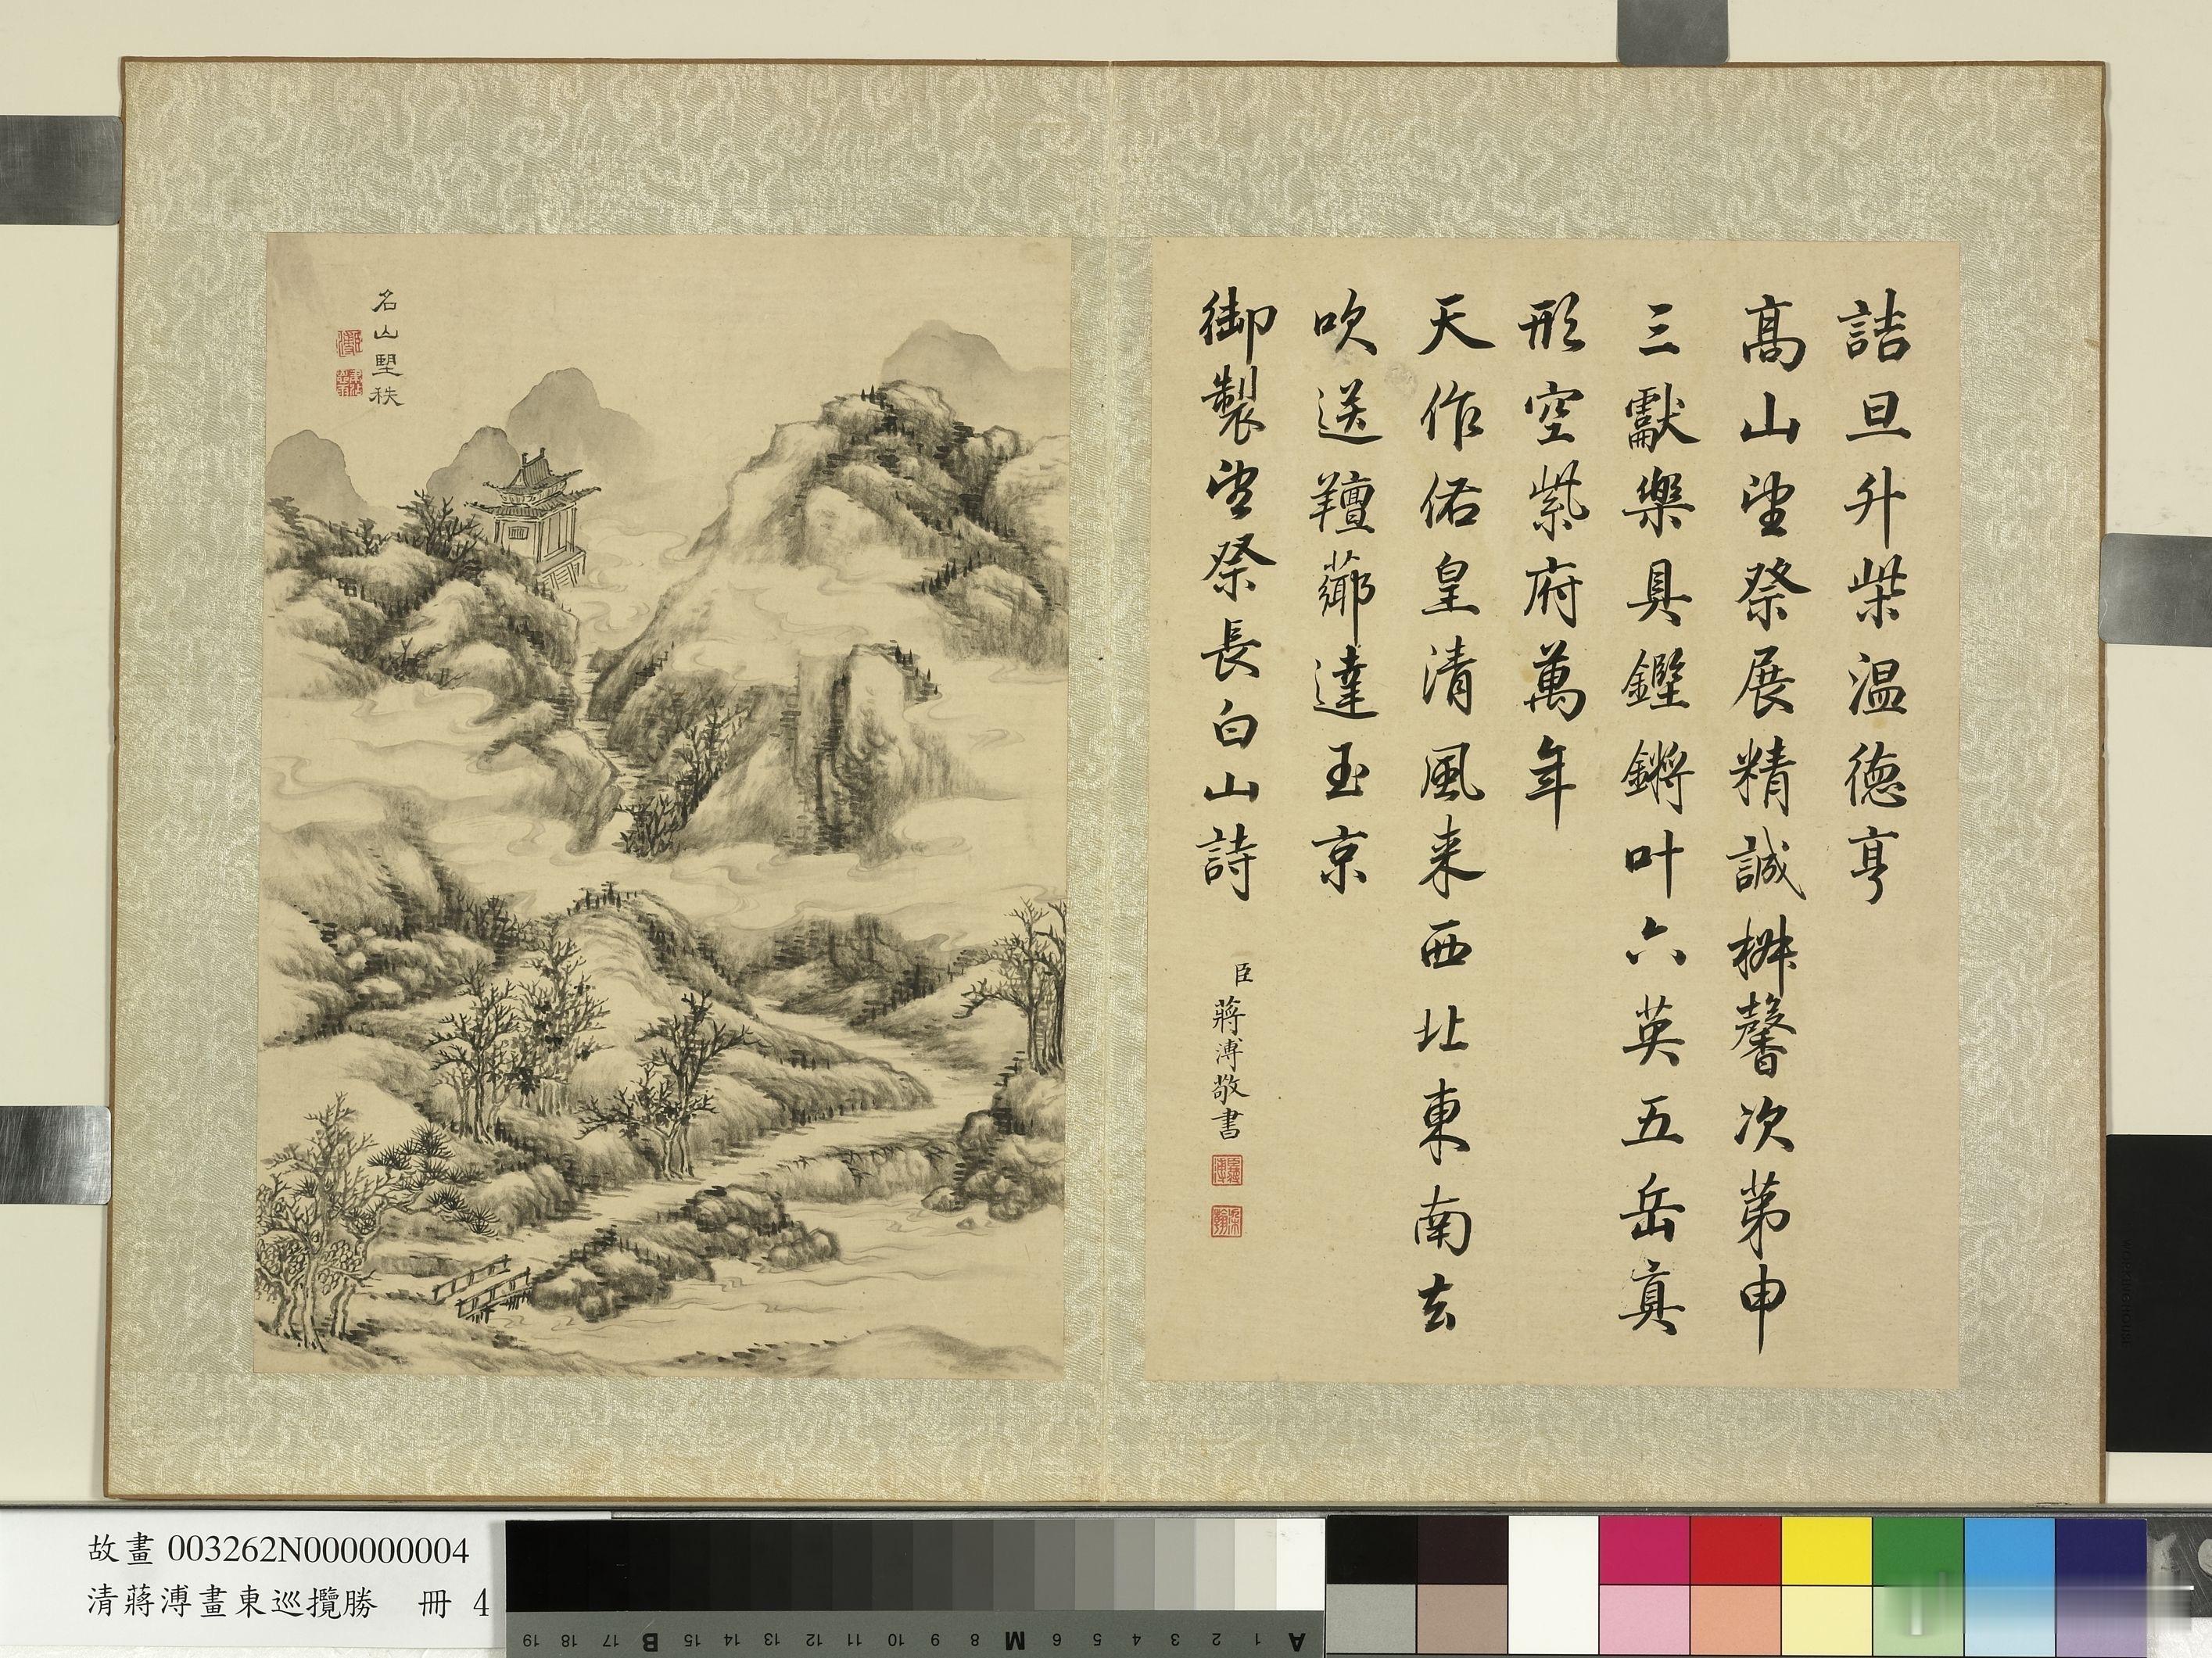 詰旦升柴温德亨
高山望祭展精誠椒馨次第申
三獻樂具鏗鏘叶六英五岳真
形空紫府萬年
天作佑皇清風来西北東南去
吹送羶薌達玉京
御製望祭長白山詩
臣蔣溥敬書
名山望秩
故畫003262N000000004
清蔣溥畫東巡攬勝 冊 4
19 18 17 B 15 14 13 12 11 10 9 8 M 6 5 4 3 2 1 A